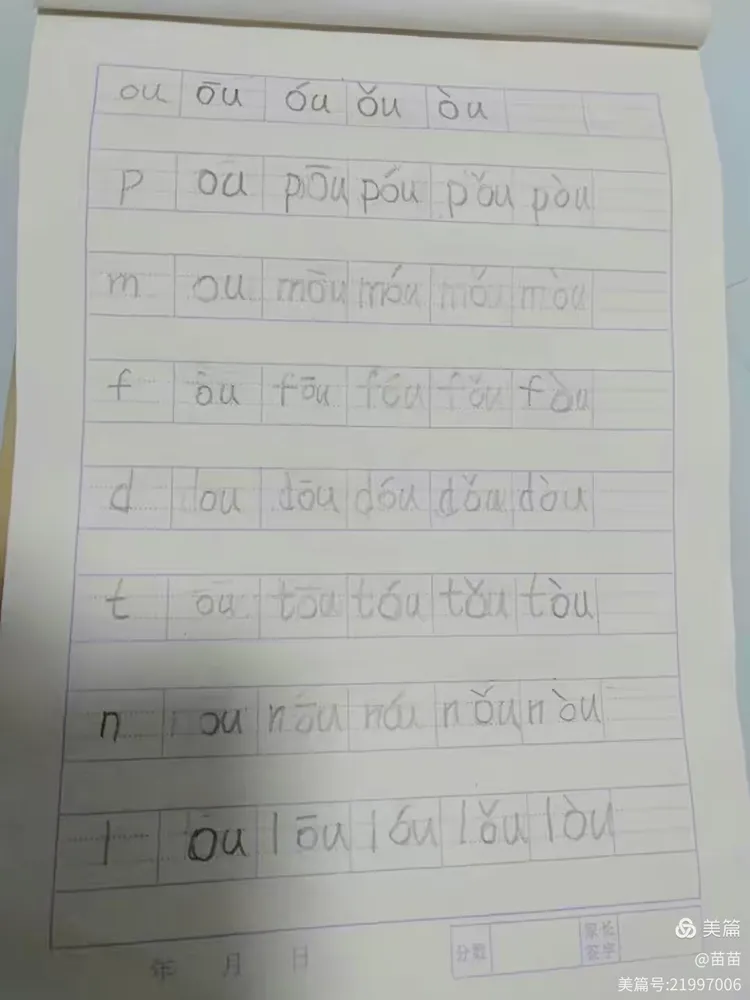 ou ōu óu ǒu òu
p ou pōu póu pǒu pòu
m ou mōu móu mǒu mòu
f ou fōu fóu fǒu fòu
d ou dōu dóu dǒu dòu
t ou tōu tóu tǒu tòu
n ou nōu nóu nǒu nòu
l ou lōu lóu lǒu lòu
年 月 日 分数 家长签字
美篇
@苗苗
美篇号:21997006